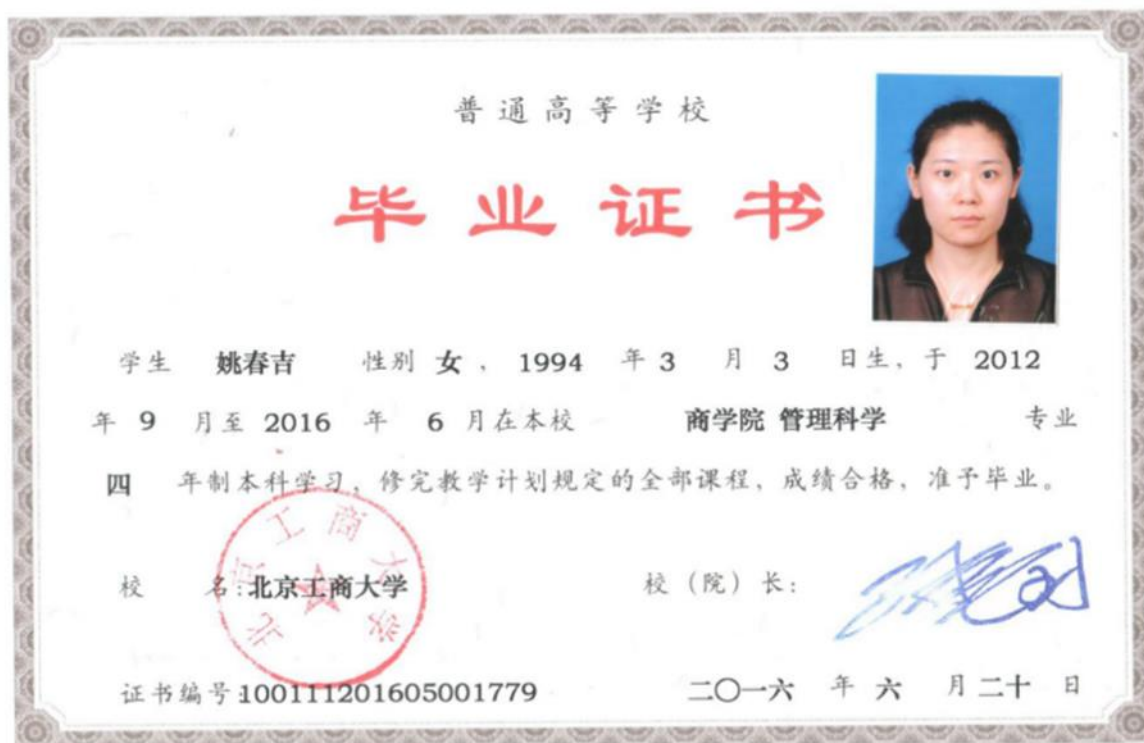 普通高等学校
毕业证书
学生 姚春吉 性别 女 ，1994 年 3 月 3 日生，于 2012
年 9 月至 2016 年 6 月在本校 商学院 管理科学 专业
四 年制本科学习，修完教学计划规定的全部课程，成绩合格，准予毕业。
北京工商大学
校 名:北京工商大学 校（院）长：
证书编号:100111201605001779 二〇一六 年 六 月 二十 日